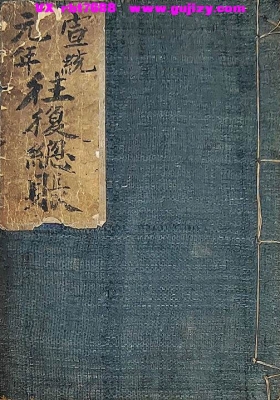 www.gujizy.com
宣統
元年
往復總賬